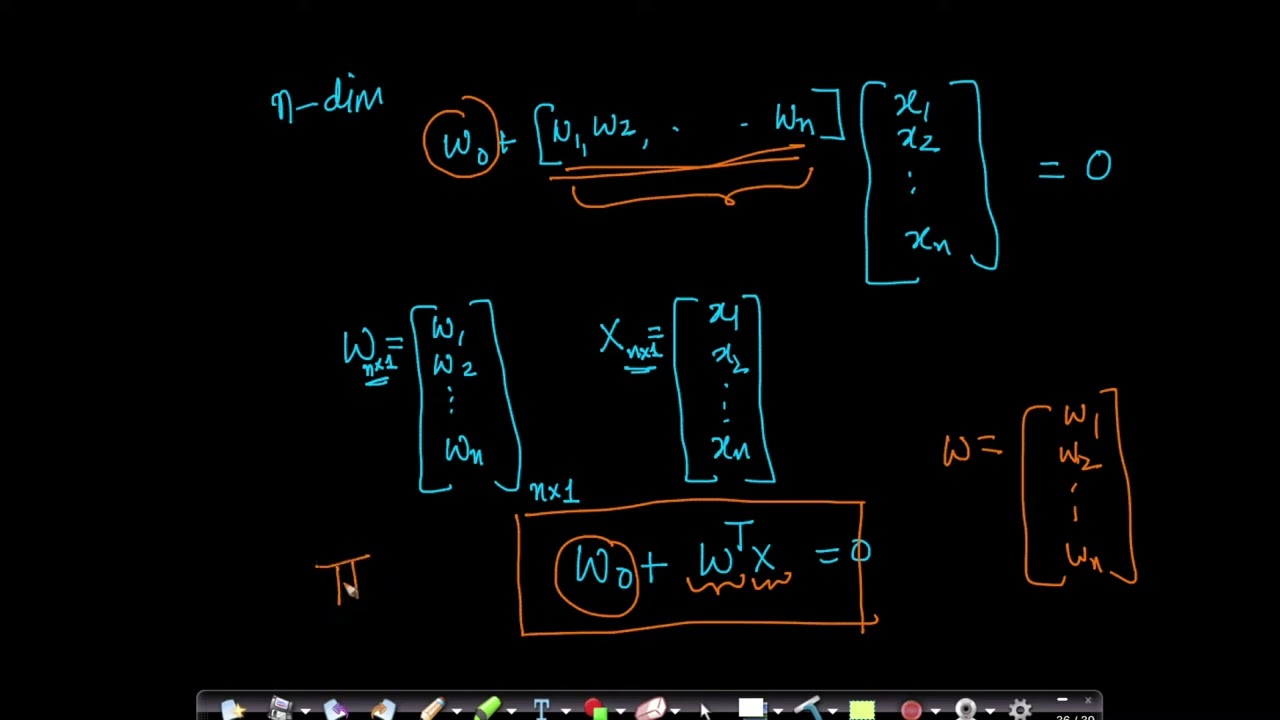 n-dim
w₀ + [w₁, w₂, . . wₙ] [x₁ x₂ ⋮ xₙ] = 0
Wₙₓ₁ = [w₁ w₂ ⋮ wₙ]ₙₓ₁ Xₙₓ₁ = [x₁ x₂ ⋮ xₙ]
w = [w₁ w₂ ⋮ wₙ]
w₀ + wᵀx = 0
π
36/39